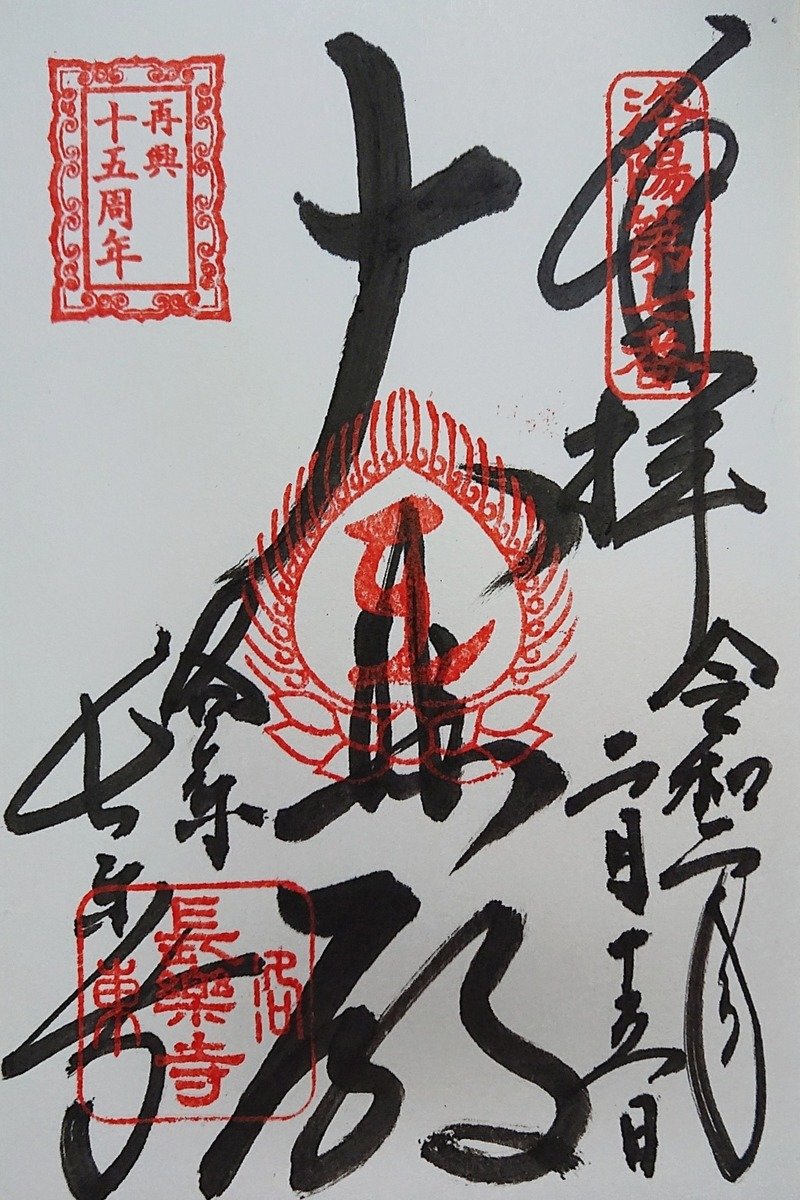 奉拝
洛陽第七番
令和二年
二月十五日
大悲殿
再興
十五周年
洛東
長楽寺
洛東
長樂寺